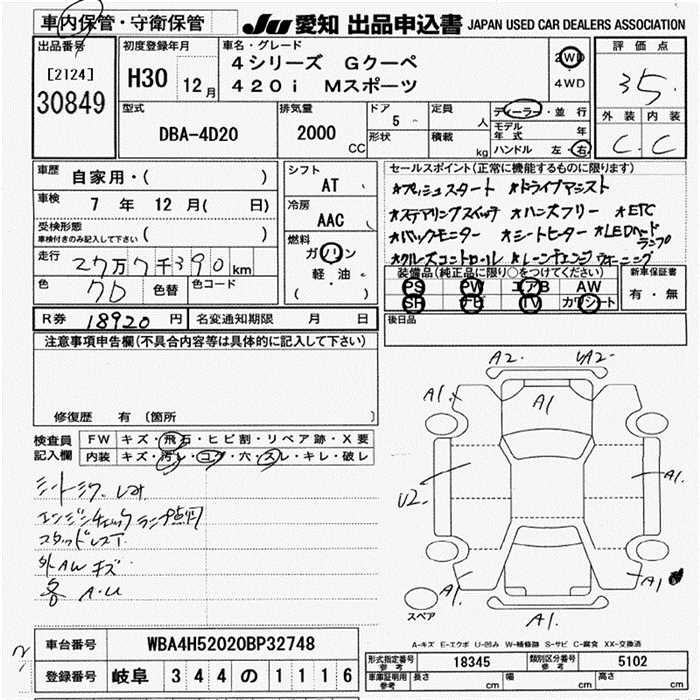 車内保管・守衛保管
JU 愛知 出品申込書 JAPAN USED CAR DEALERS ASSOCIATION
出品番号
[2124]
30849
初度登録年月
H30 12月
車名・グレード
4シリーズ Gクーペ
420i Mスポーツ
2WD
4WD
評価点
3.5
外装 内装
C C
型式
DBA-4D20
排気量
2000 CC
ドア 5
形状
定員 人
積載 kg
ディーラー・並行
モデル年式 年
ハンドル 左・右
車歴 自家用・( )
車検 7年 12月( 日)
受検形態
車検付きのみ記入して下さい ( )
走行 27万7千390km
色 色替 色コード
シフト
AT
冷房
AAC
燃料
ガソリン
軽・油
( )
セールスポイント(正常に機能するものに限ります)
*プッシュスタート *ドライブアシスト
*ステアリングスイッチ *ハンズフリー *ETC
*バックモニター *シートヒーター *LEDヘッドランプ
*クルーズコントロール *レーンチェンジウォーニング
装備品(純正品に限り○をつけてください)
PS PW エアB AW
SR ナビ TV カワシート
新車保証書
有・無
後日品
R券 18920円 名変通知期限 月 日
注意事項申告欄(不具合内容等は具体的に記入して下さい)
修復歴 有 〔箇所
検査員記入欄
FW キズ・飛石・ヒビ割・リペア跡・X要
内装 キズ・汚レ・コゲ・穴・スレ・キレ・破レ
エンジンチェックランプ点灯
スタッドレス
外AW キズ
各 A・U
A2. A2-
A1. A1
A1.
U2-
A1.
A1
A1.
スペア
A-キズ E-エクボ U-凹み W-補修跡 S-サビ C-腐食 XX-交換済
車台番号 WBA4H52020BP32748
登録番号 岐阜 344 の 1116
形式指定番号 参考 18345 類別区分番号 参考 5102
車庫証明用 参考 長さ cm 幅 cm 高さ cm